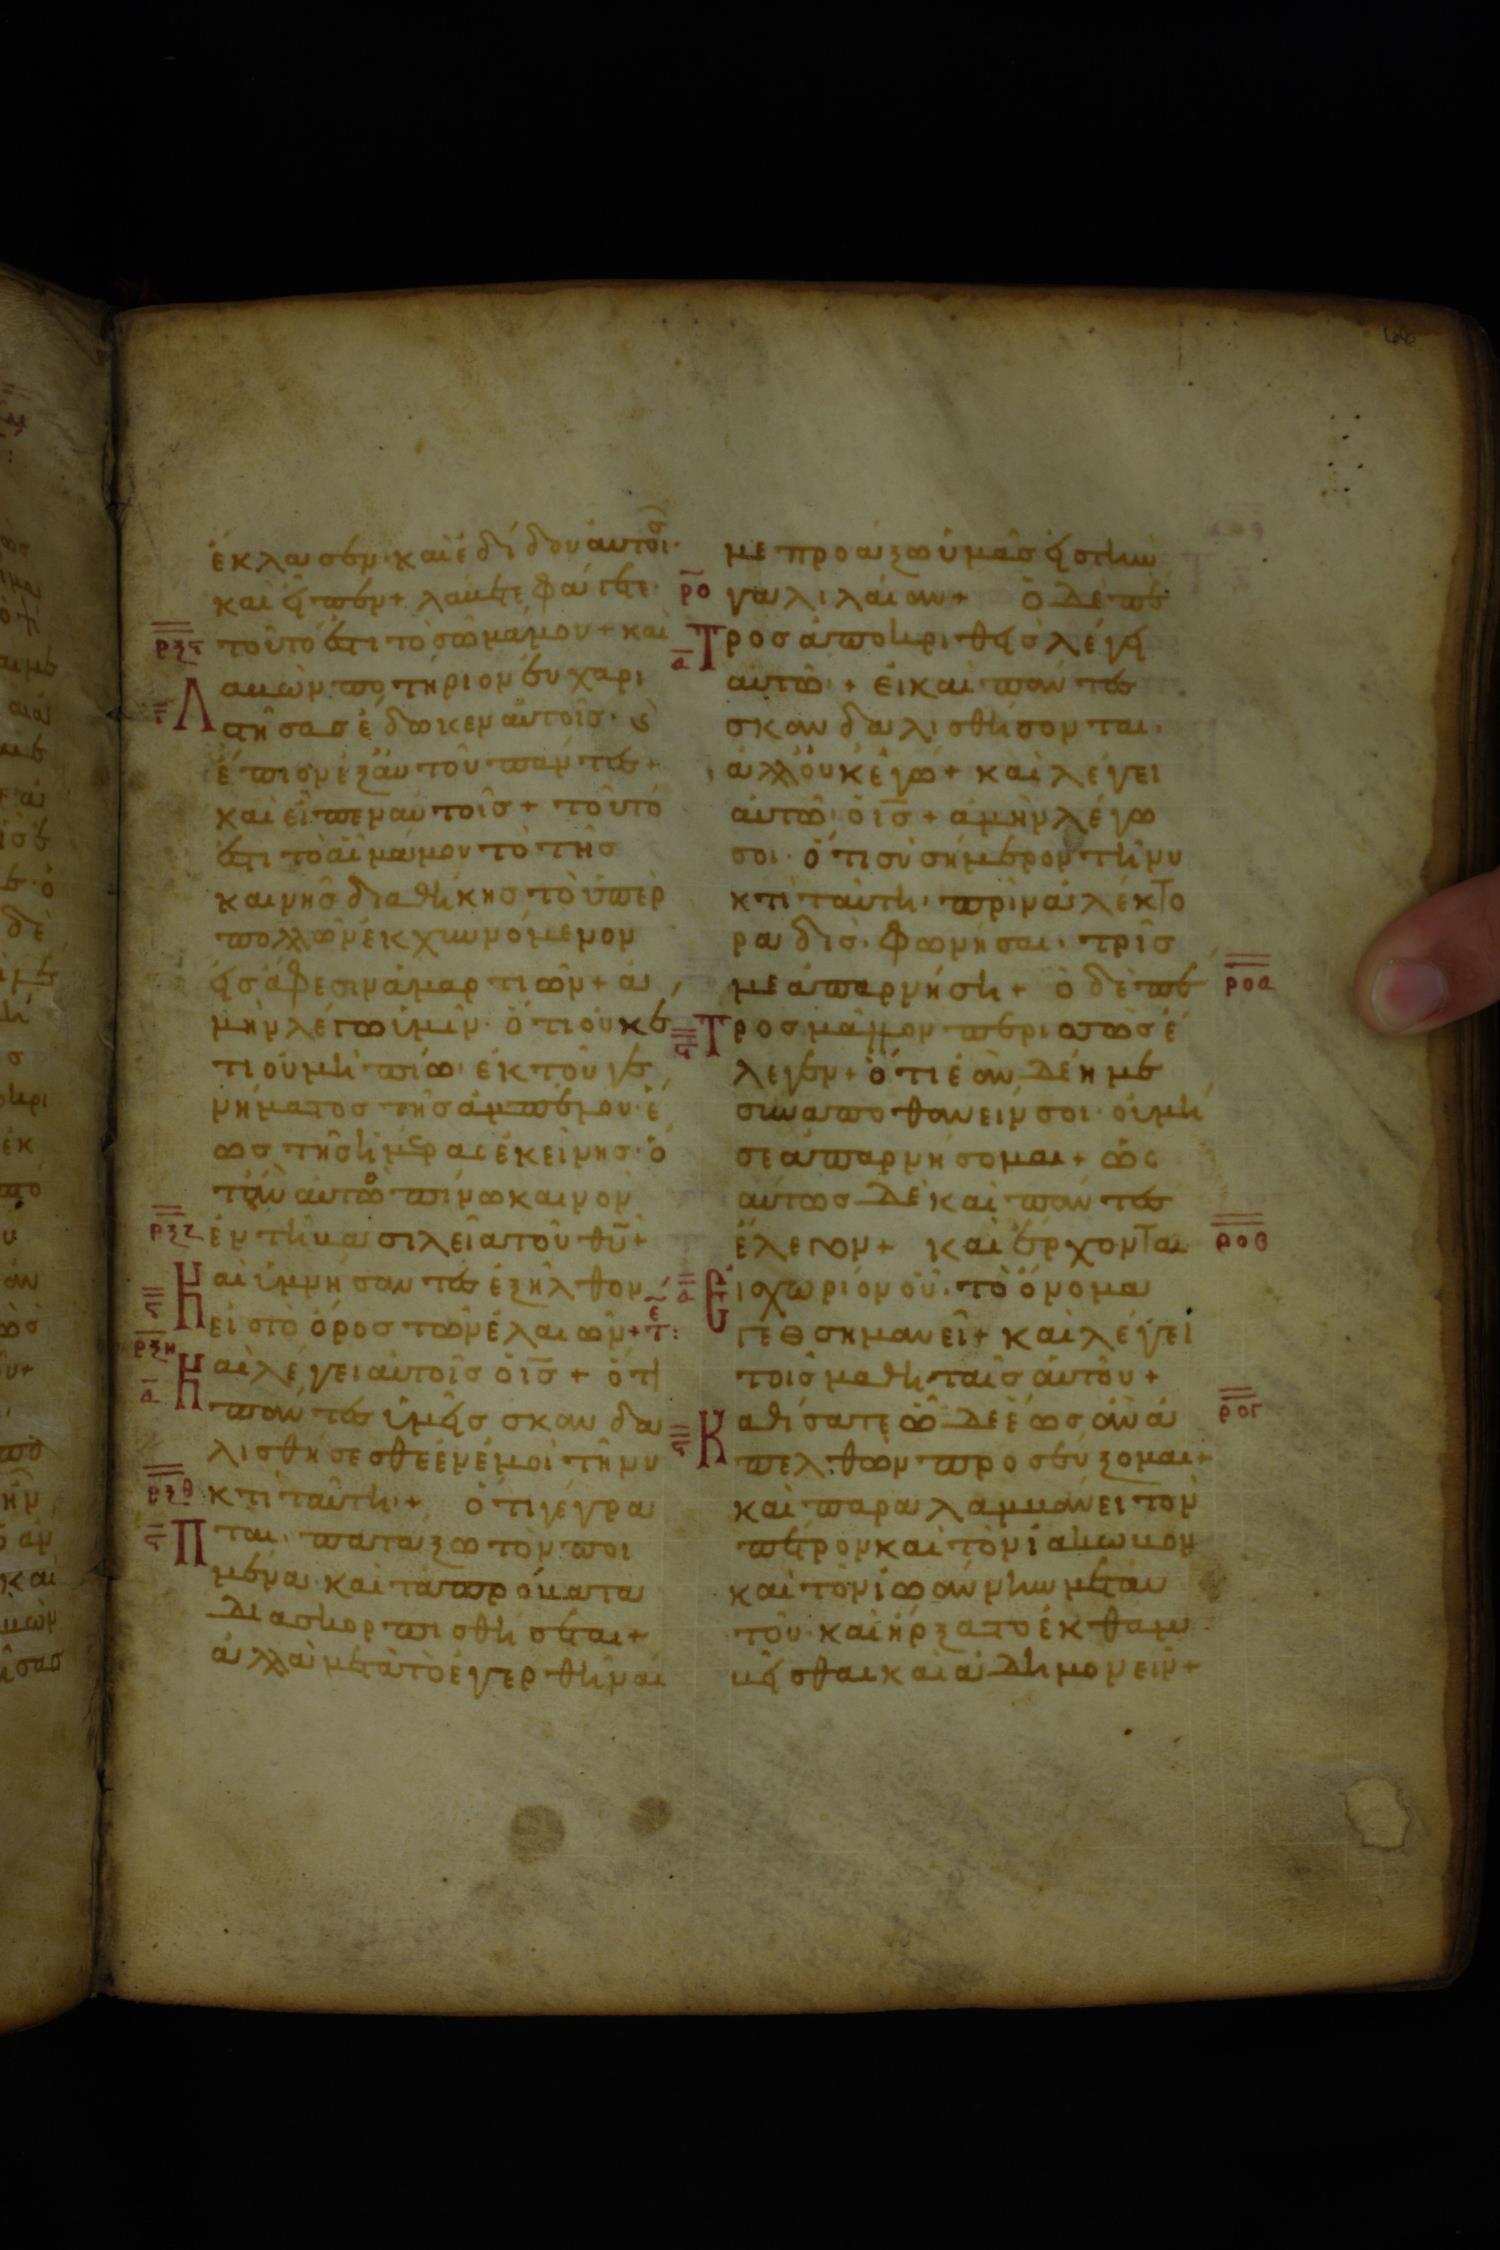 ἔκλασεν· καὶ ἐδίδου αὐτοῖς·
καὶ εἶπεν + λάβετε φάγετε·
τοῦτό ἐστι τὸ σῶμά μου + και
ρξϛ
Λ αβὼν ποτήριον εὐχαρι
στήσασ ἔδωκεν αὐτοῖσ· καὶ
ἔπιον ἐξ αὐτοῦ πάντεσ +
καὶ εἶπεν αὐτοῖσ + τοῦτό
ἐστι τὸ αἷμά μου τὸ τῆσ
καινῆσ διαθήκησ τὸ ὑπὲρ
πολλῶν ἐκχυννόμενον
εἰσ ἄφεσιν ἁμαρτιῶν + ἀ
μὴν λέγω ὑμῖν· ὅτι οὐκέ
τι οὐ μὴ πίω· ἐκ τοῦ γεν
νήματοσ τῆσ ἀμπέλου· ἕ
ωσ τῆσ ἡμέρασ ἐκείνησ· ὅ
ταν αὐτὸ πίνω καινὸν
ρξζ
ἐν τῆ βασιλεία τοῦ θυ +
Κ αὶ ὑμνήσαντεσ ἐξῆλθον
εἰσ τὸ ὄροσ τῶν ἐλαιῶν +
ρξη
Κ αὶ λέγει αὐτοῖσ ὁ ισ + ὅτι
πάντεσ ὑμεῖσ σκανδα
λισθήσεσθε ἐν ἐμοὶ τῆ νυ
ρξθ
κτὶ ταύτη· + ὅτι γέγρα
Π ται· πατάξω τὸν ποι
μένα· καὶ τὰ πρόβατα
διασκορπισθήσεται +
ἀλλὰ μετὰ τὸ ἐγερθῆναί
με προάξω ὑμᾶσ εἰσ τὴν
ρο
γαλιλαίαν + ὁ δὲ πέ
Τ ροσ ἀποκριθεὶσ λέγει
αὐτῶ· + εἰ καὶ πάντεσ
σκανδαλισθήσονται·
ἀλλ' οὐκ ἐγώ + καὶ λέγει
αὐτῶ· ὁ ισ + ἀμὴν λέγω
σοι· ὅτι σὺ σήμερον τῆ νυ
κτὶ ταύτη· πρὶν ἀλέκτο
ρα δὶσ· φωνῆσαι· τρὶσ
με ἀπαρνήση + ὁ δὲ πέ
ροα
Τ ροσ μᾶλλον περισσῶσ ἔ
λεγεν + ὅτι ἐάν δέη με
συναποθανεῖν σοι· οὐ μή
σε ἀπαρνήσομαι + ὡσ
αύτωσ δὲ καὶ πάντεσ
ἔλεγον + καὶ ἔρχονται
ροβ
Ε ἰσ χωρίον οὗ· τὸ ὄνομα
γεθσημανεῖ + καὶ λέγει
τοῖσ μαθηταῖσ αὐτοῦ +
ρογ
Κ αθίσατε ὧδε ἕωσ ἂν ἀ
πελθὼν προσεύξομαι +
καὶ παραλαμβάνει τὸν
πέτρον καὶ τὸν ἰάκωβον
καὶ τὸν ἰωάννην μετ' αυ
τοῦ· καὶ ἤρξατο ἐκθαμ
βεῖσθαι καὶ ἀδημονεῖν +